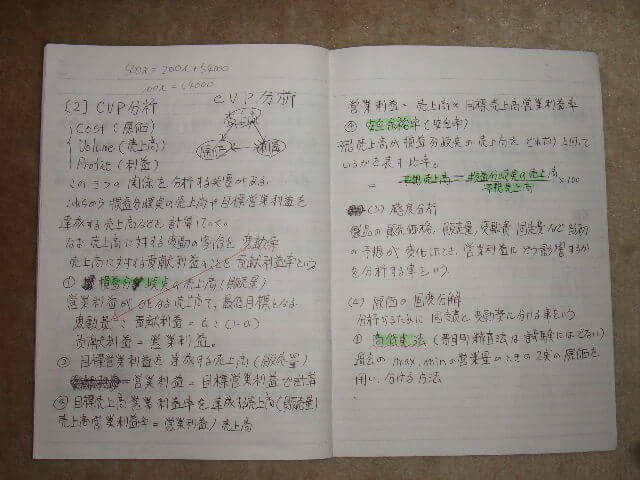 500x = 200x + 54000
(2) CVP分析
CVP分析
Cost (原価)
Volume (売上高)
Profit (利益)
原価
この3つの関係を分析する必要がある。
これらから損益分岐点の売上高や目標営業利益を
達成する売上高などを計算していく。
なお 売上高に対する変動費の割合を 変動費率
売上高に対する貢献利益のことを 貢献利益率という
① 損益分岐点の売上高(販売量)
営業利益が0となる売上高で、最低目標となる。
貢献利益 = 営業利益。
② 目標営業利益を達成する売上高(販売量)
営業利益 = 目標営業利益で計算
③ 目標売上高営業利益率を達成する売上高(販売量)
売上高営業利益率 = 営業利益 / 売上高
営業利益 = 売上高 × 目標売上高営業利益率
④ 安全余裕率(安全率)
売上高が損益分岐点の売上高を どれだけ上回って
いるかを表す比率。
= 予想売上高 - 損益分岐点の売上高 / 予想売上高 × 100
(3) 感度分析
製品の販売価格、販売量、変動費、固定費など当初
の予想が変化したとき、営業利益にどう影響するか
を分析する事という。
(4) 原価の固変分解
分析のために固定費と変動費に分ける事をいう
① 高低点法 (費目別精査法は試験にはでない)
過去の max, min の営業量のときの2点の原価を
用い、分ける方法